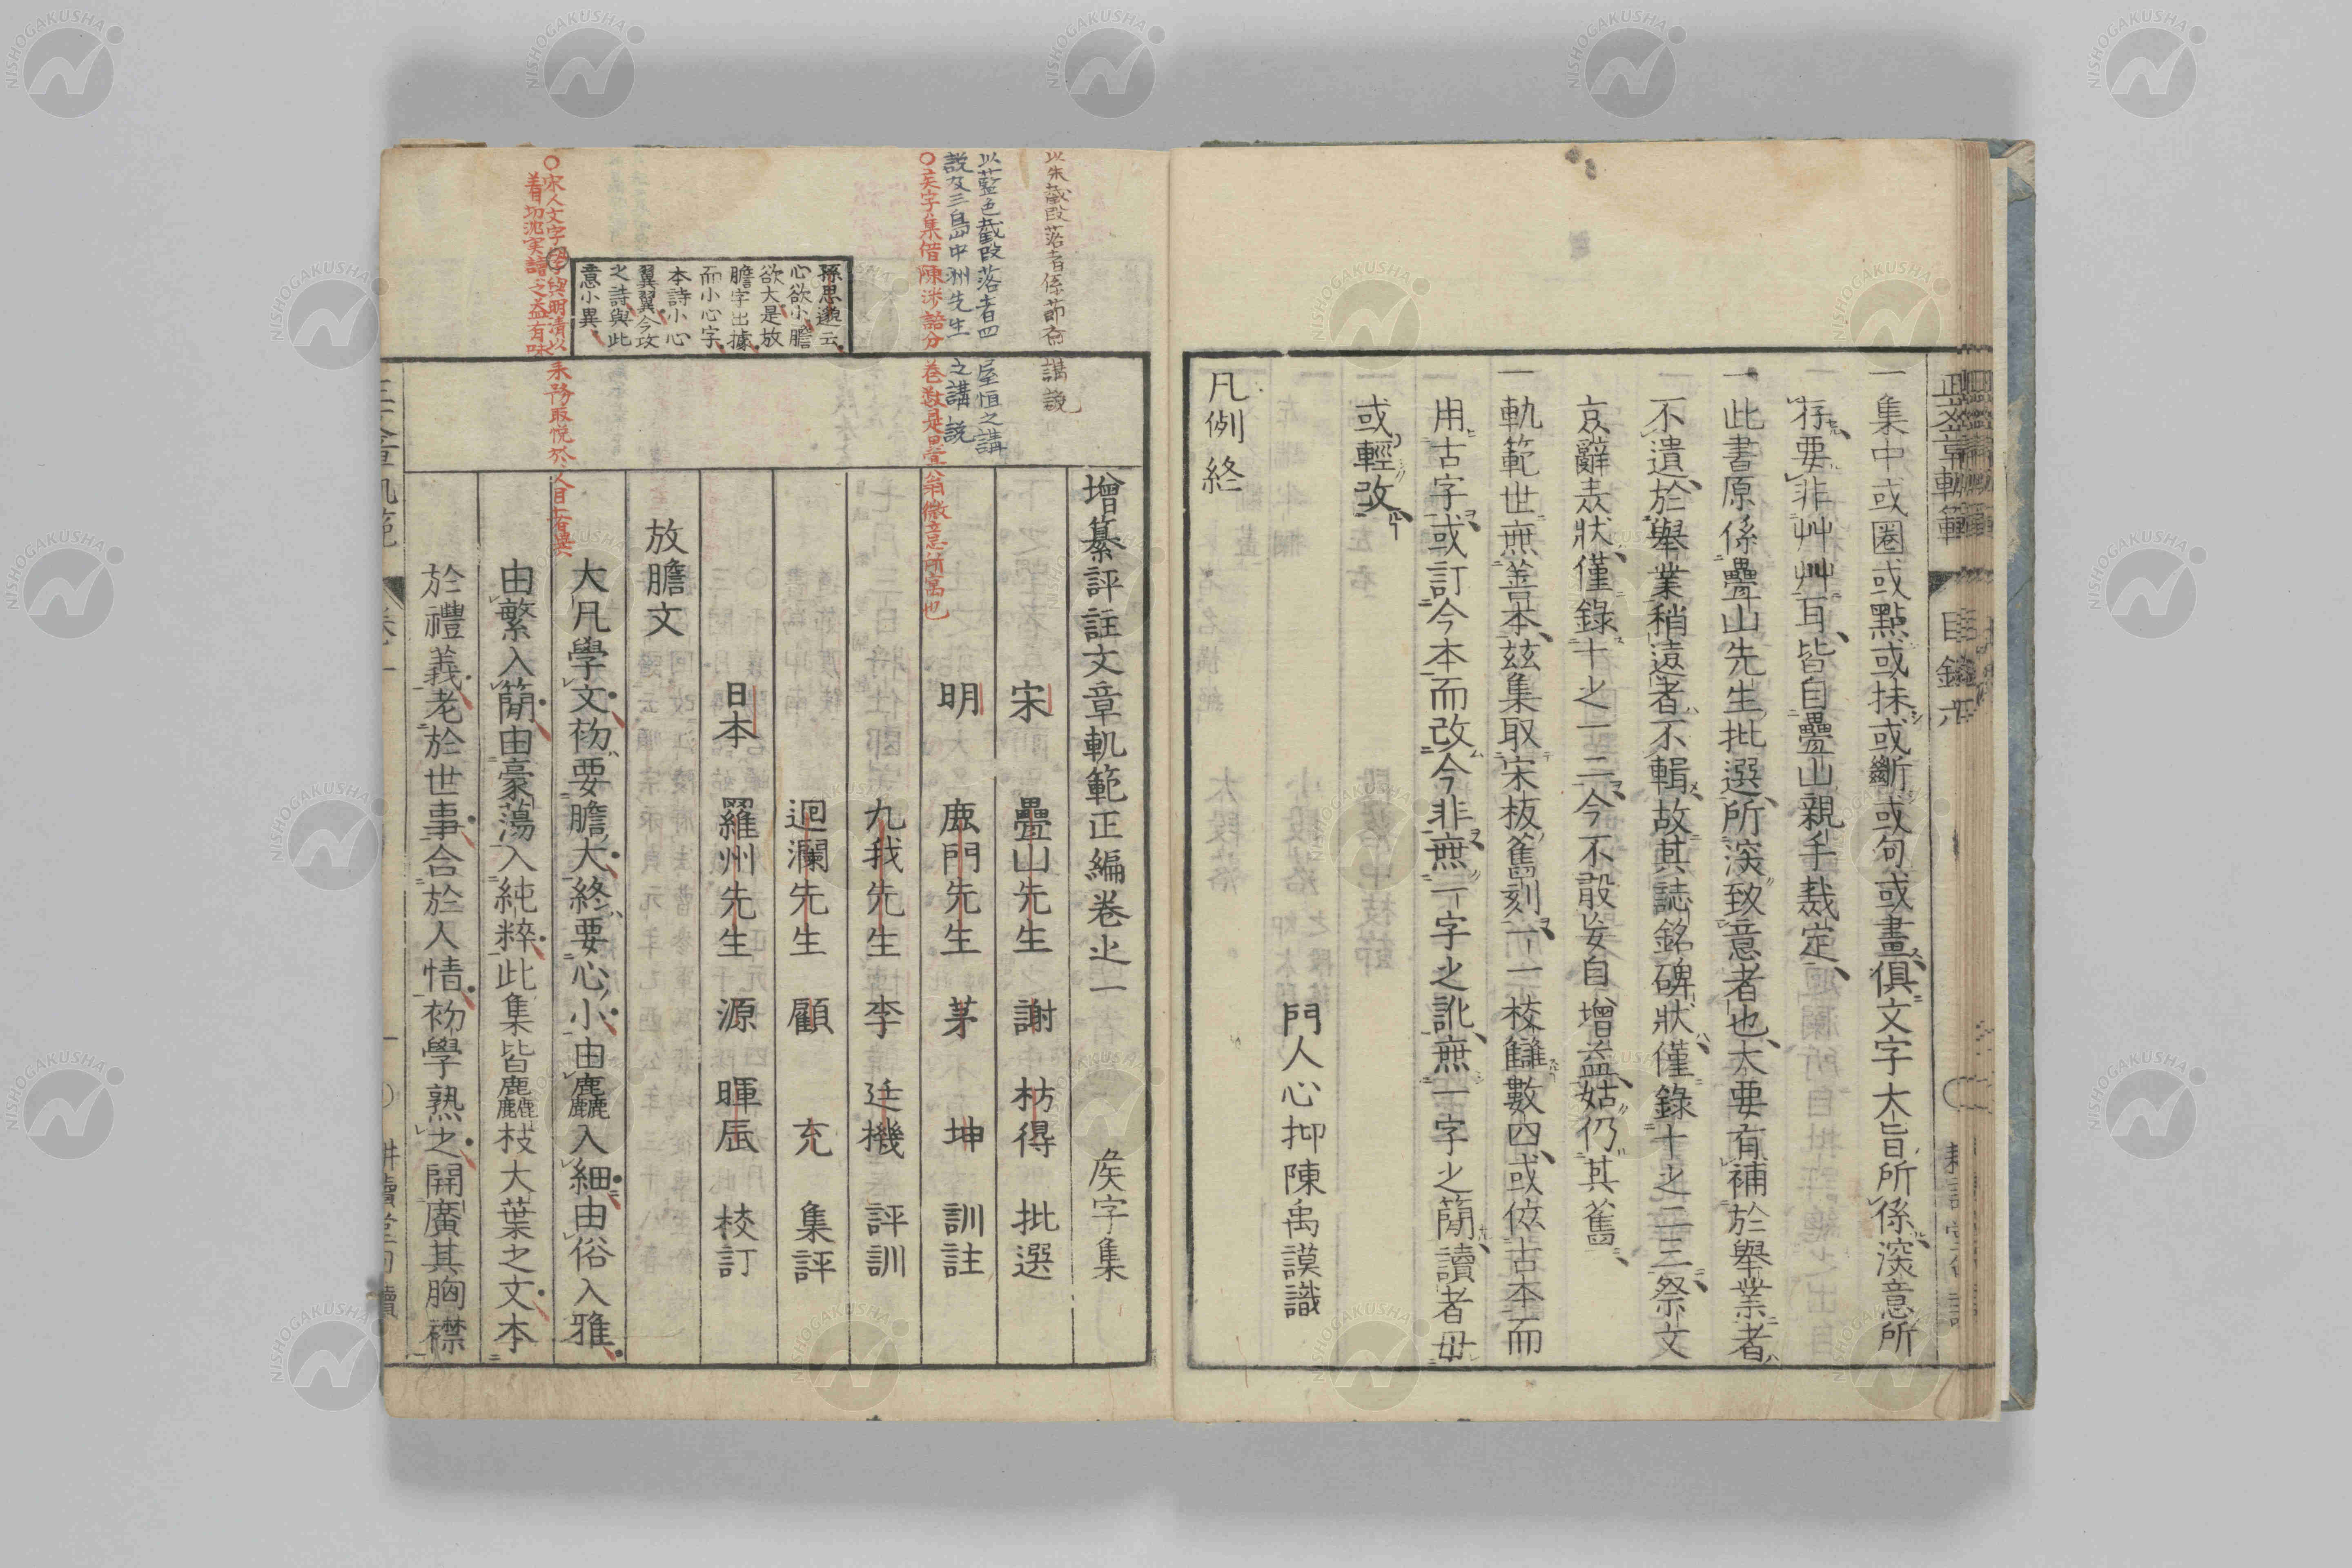 一集中或圈或點或抹或斷或句或畫俱文字大旨所係深意所
存要非艸艸耳皆自疊山親手裁定
一此書原係疊山先生批選所深致意者也大要有補於舉業者
不遺於舉業稍遠者不輯故其誌銘碑狀僅錄十之二三祭文
哀辭表狀僅錄十之一二今不敢妄自增益姑仍其舊
一軌範世無善本茲集取宋板舊刻一一校讎數四或依古本而
用古字或訂今本而改今非無一字之訛無一字之簡讀者毋
或輕改
門人心抑陳禹謨識
凡例終
以朱截段落者係節有講説
以藍色截段落者四屋恒之講
説及三島中洲先生之講説
○矦字集借陳涉諸分卷蓋是疊翁微意所寓也
增纂評註文章軌範正編卷之一 矦字集
宋 疊山先生 謝 枋得 批選
明 鹿門先生 茅 坤 訓註
九我先生 李 廷機 評訓
迴瀾先生 顧 充 集評
日本 羅州先生 源 暉辰 校訂
孫思邈云
心欲小膽
欲大是放
膽字出據
而小心字
本詩小心
翼翼今攷
之詩與此
意小異
放膽文
大凡學文初要膽大終要心小由麤入細由俗入雅
由繁入簡由豪蕩入純粹此集皆麤枝大葉之文本
於禮義老於世事合於人情初學熟之開廣其胸襟
NISHOGAKUSHA